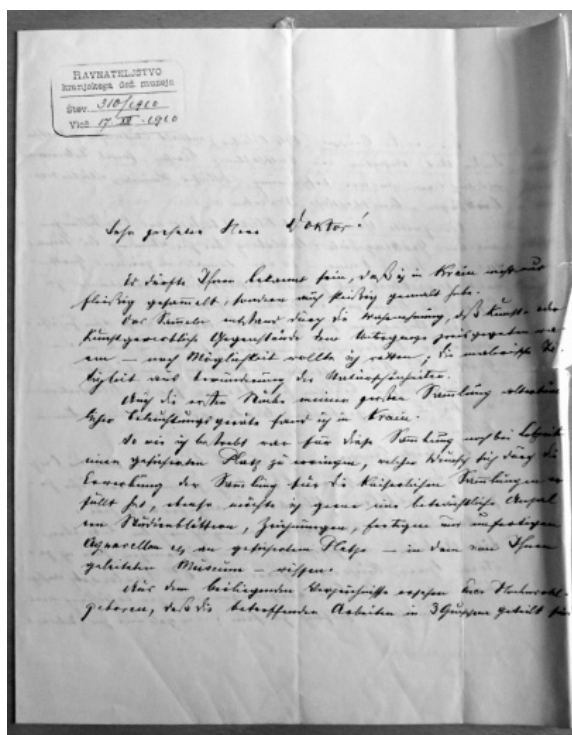 RAVNATELJSTVO
kranjskega dež. muzeja
Štev. 310/1910
Vlož. 17. XII. 1910
Sehr geehrter Herr Doktor!
Es dürfte Ihnen bekannt sein, daß ich in Krain nicht nur
fleißig gesammelt, sondern auch fleißig gemalt habe.
Das Sammeln entstand durch die Wahrnehmung, daß Kunst- oder
kunstgewerbliche Gegenstände dem Untergange preisgegeben wa-
ren — nach Möglichkeit wollte ich retten; die malerische Tä-
tigkeit aus Bewunderung der Naturschönheiten.
Auch die ersten Stücke meiner großen Sammlung altertüm-
licher Beleuchtungsgeräte fand ich in Krain.
So wie ich bestrebt war für diese Sammlung noch bei Lebzeiten
einen gesicherten Platz zu erringen, welcher Wunsch sich durch die
Erwerbung der Sammlung für die Kaiserlichen Sammlungen er-
füllt hat, ebenso möchte ich gerne eine beträchtliche Anzahl
von Studienblättern, Zeichnungen, fertigen und unfertigen
Aquarellen etz an gesichertem Platze — in dem von Ihnen
geleiteten Museum — wissen.
Aus dem beiliegenden Verzeichnisse ersehen Euer Hochwohl-
geboren, daß die betreffenden Arbeiten in 3 Gruppen geteilt sind